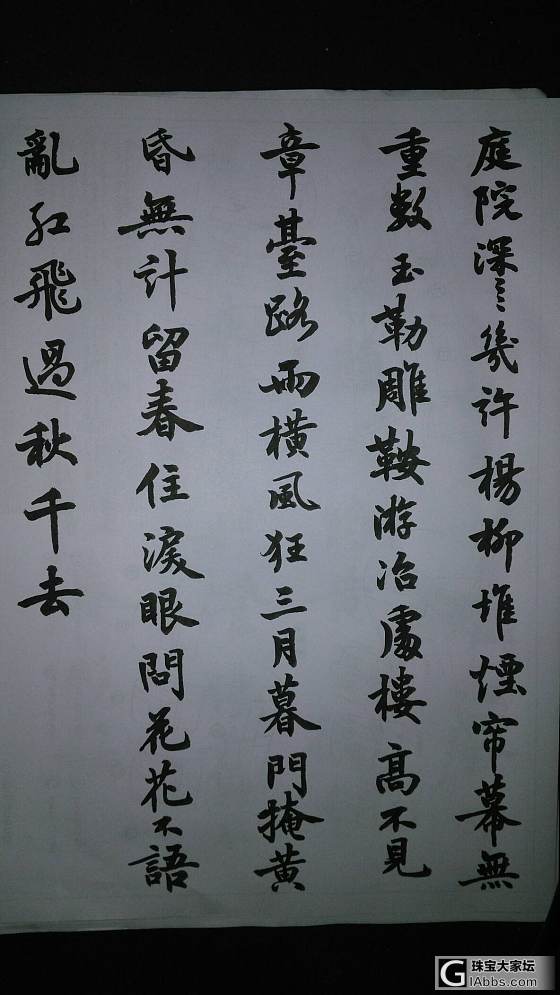 庭院深〻幾許楊柳堆煙帘幕無
重数玉勒雕鞍游冶處樓高不見
章臺路雨橫風狂三月暮門掩黄
昏無計留春住淚眼問花花不語
亂紅飛過秋千去
珠宝大家坛
G1Abbs.com